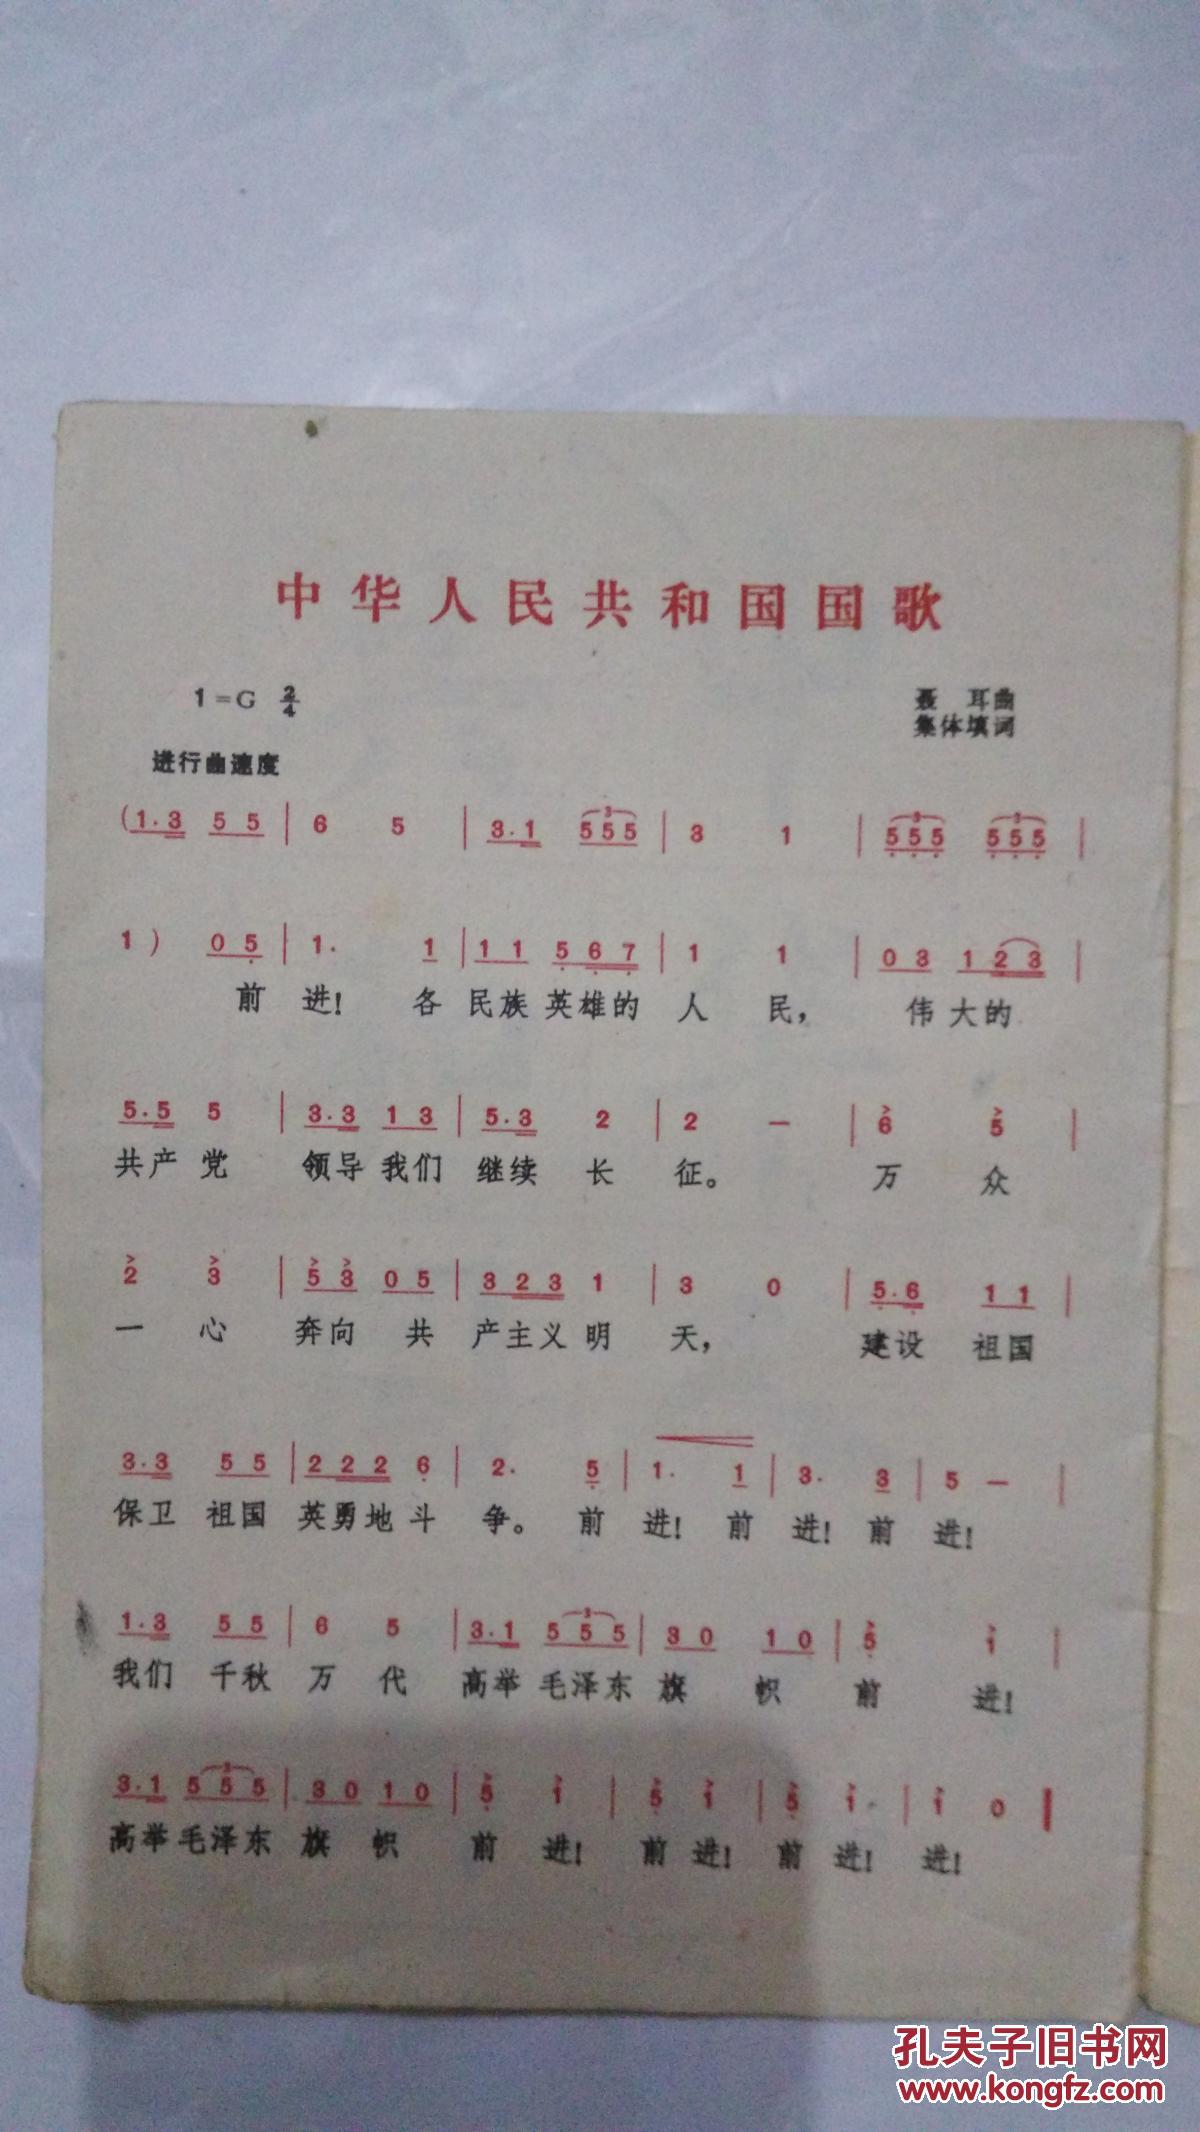 中华人民共和国国歌
1=G 2/4
聂 耳曲
集体填词
进行曲速度
(1.3 55 | 6 5 | 3.1 555 | 3 1 | 555 555 |
1) 05 | 1. 1 | 11 567 | 1 1 | 03 123 |
前 进! 各 民族 英雄的 人 民, 伟大的
5.5 5 | 3.3 13 | 5.3 2 | 2 — | 6 5 |
共产 党 领导 我们 继续 长 征。 万 众
2 3 | 53 05 | 323 1 | 3 0 | 5.6 11 |
一 心 奔向 共 产主义 明 天, 建设 祖国
3.3 55 | 222 6 | 2. 5 | 1. 1 | 3. 3 | 5 — |
保卫 祖国 英勇地 斗 争。 前 进! 前 进! 前 进!
1.3 55 | 6 5 | 3.1 555 | 30 10 | 5 1 |
我们 千秋 万 代 高举 毛泽东 旗 帜 前 进!
3.1 555 | 30 10 | 5 1 | 5 1 | 5 1 | 1 0 |
高举 毛泽东 旗 帜 前 进! 前 进! 前 进! 进!
孔夫子旧书网
www.kongfz.com